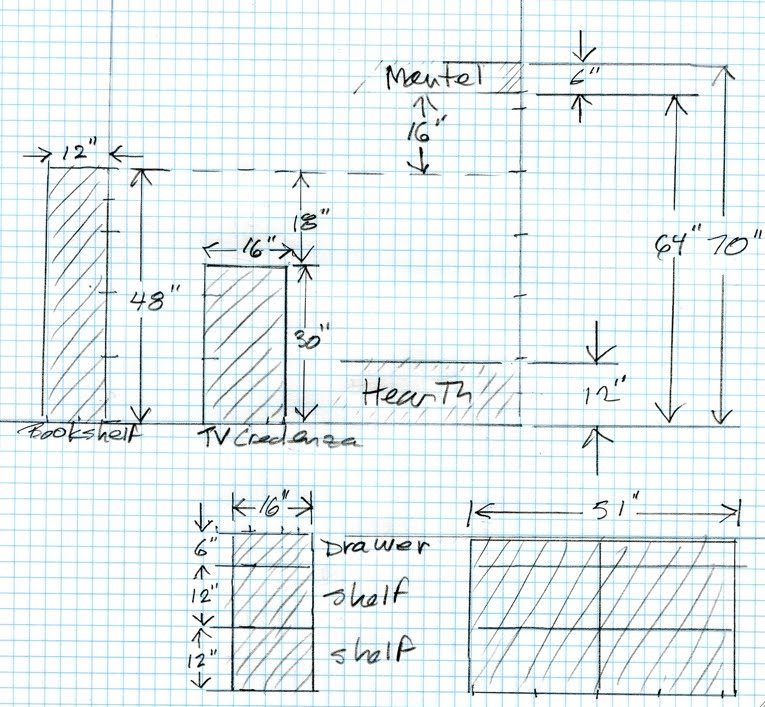 Mantel
6"
16"
12"
18"
64"
70"
16"
48"
30"
Hearth
12"
Bookshelf
TV Credenza
16"
51"
6"
Drawer
12"
shelf
12"
shelf